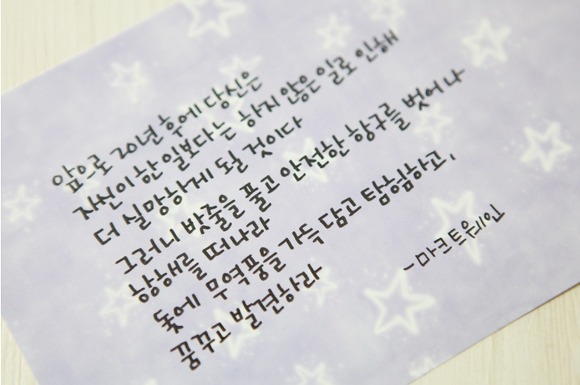 앞으로 20년 후에 당신은
자신이 한 일보다는 하지 않은 일로 인해
더 실망하게 될 것이다
그러니 밧줄을 풀고 안전한 항구를 벗어나
항해를 떠나라
돛에 무역풍을 가득 담고 탐험하고,
꿈꾸고 발견하라
-마크트웨인